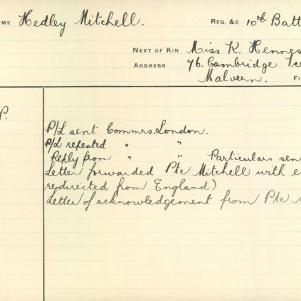 ME Hedley Mitchell. REG. &C 10th Batt
NEXT OF KIN Miss K. Hennes
ADDRESS 76. Cambridge
Malvern. FI
P.
P/L sent Commrs. London.
P/L repeated " "
Reply from " " Particulars sen
Letter forwarded Pte Mitchell with e
redirected from England)
Letter of acknowledgement from Pte